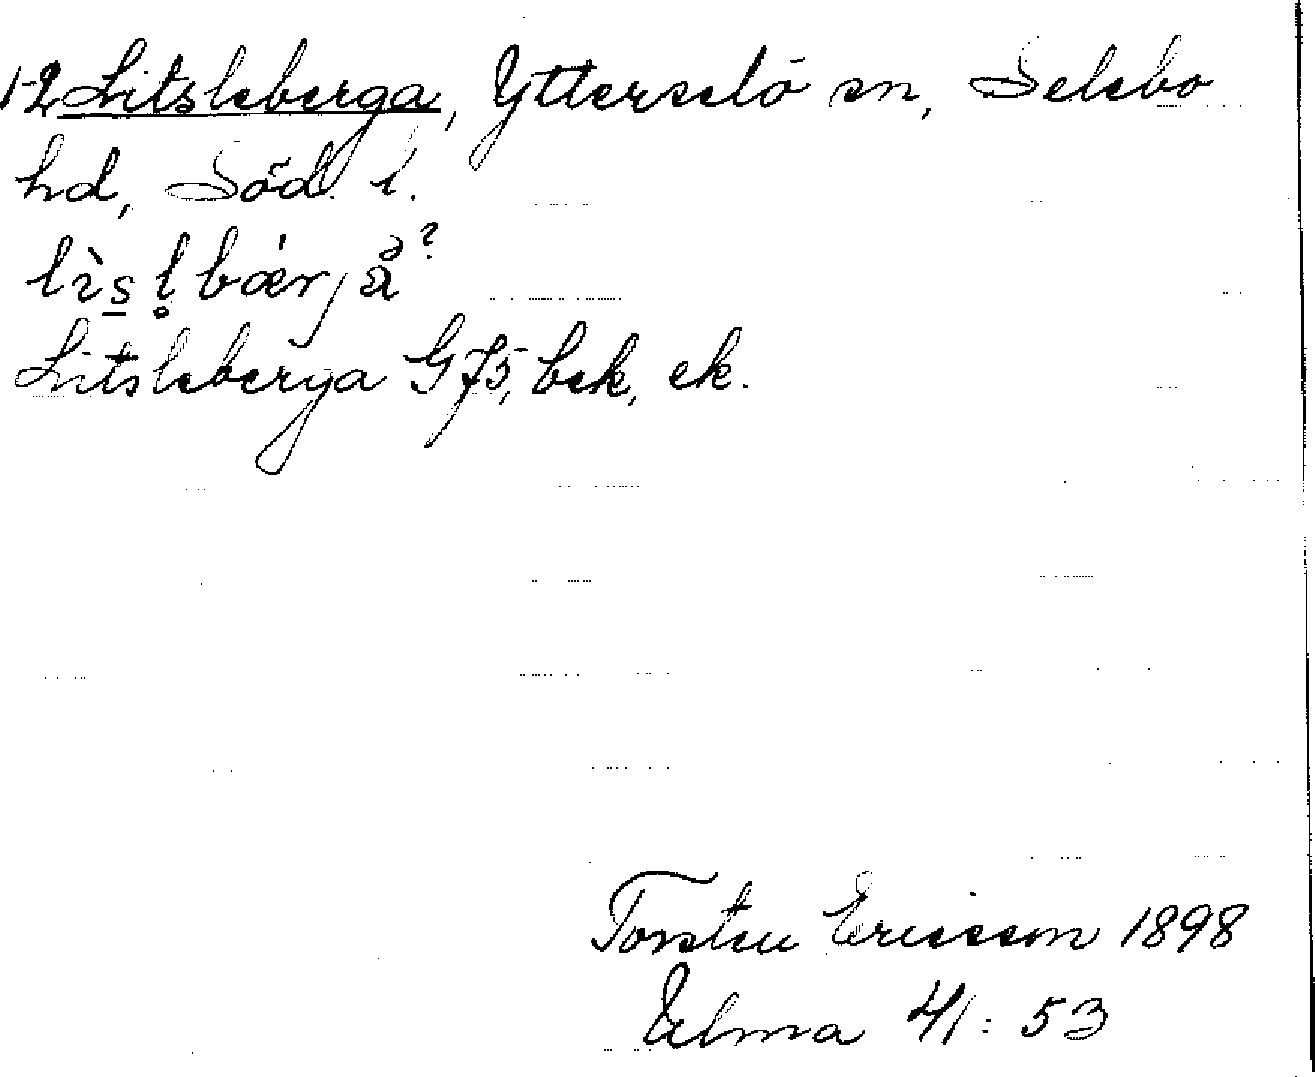 1-2 Litsleberga, Ytterselö sn, Selebo
hd, Söd. l.
lìs̲l̥bærjå?
Litsleberga G75, bek, ek.
Torsten Ericsson 1898
Ulma 41:53